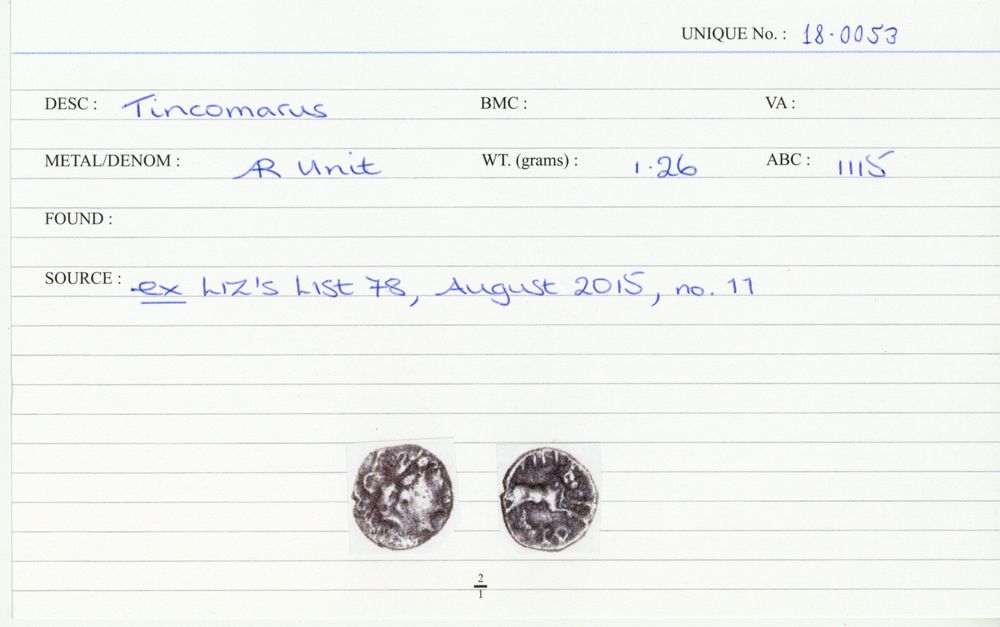 UNIQUE No. : 18·0053
DESC : Tincomarus BMC : VA :
METAL/DENOM : AR Unit WT. (grams) : 1·26 ABC : 1115
FOUND :
SOURCE : ex Liz's List 78, August 2015, no. 11
2
1